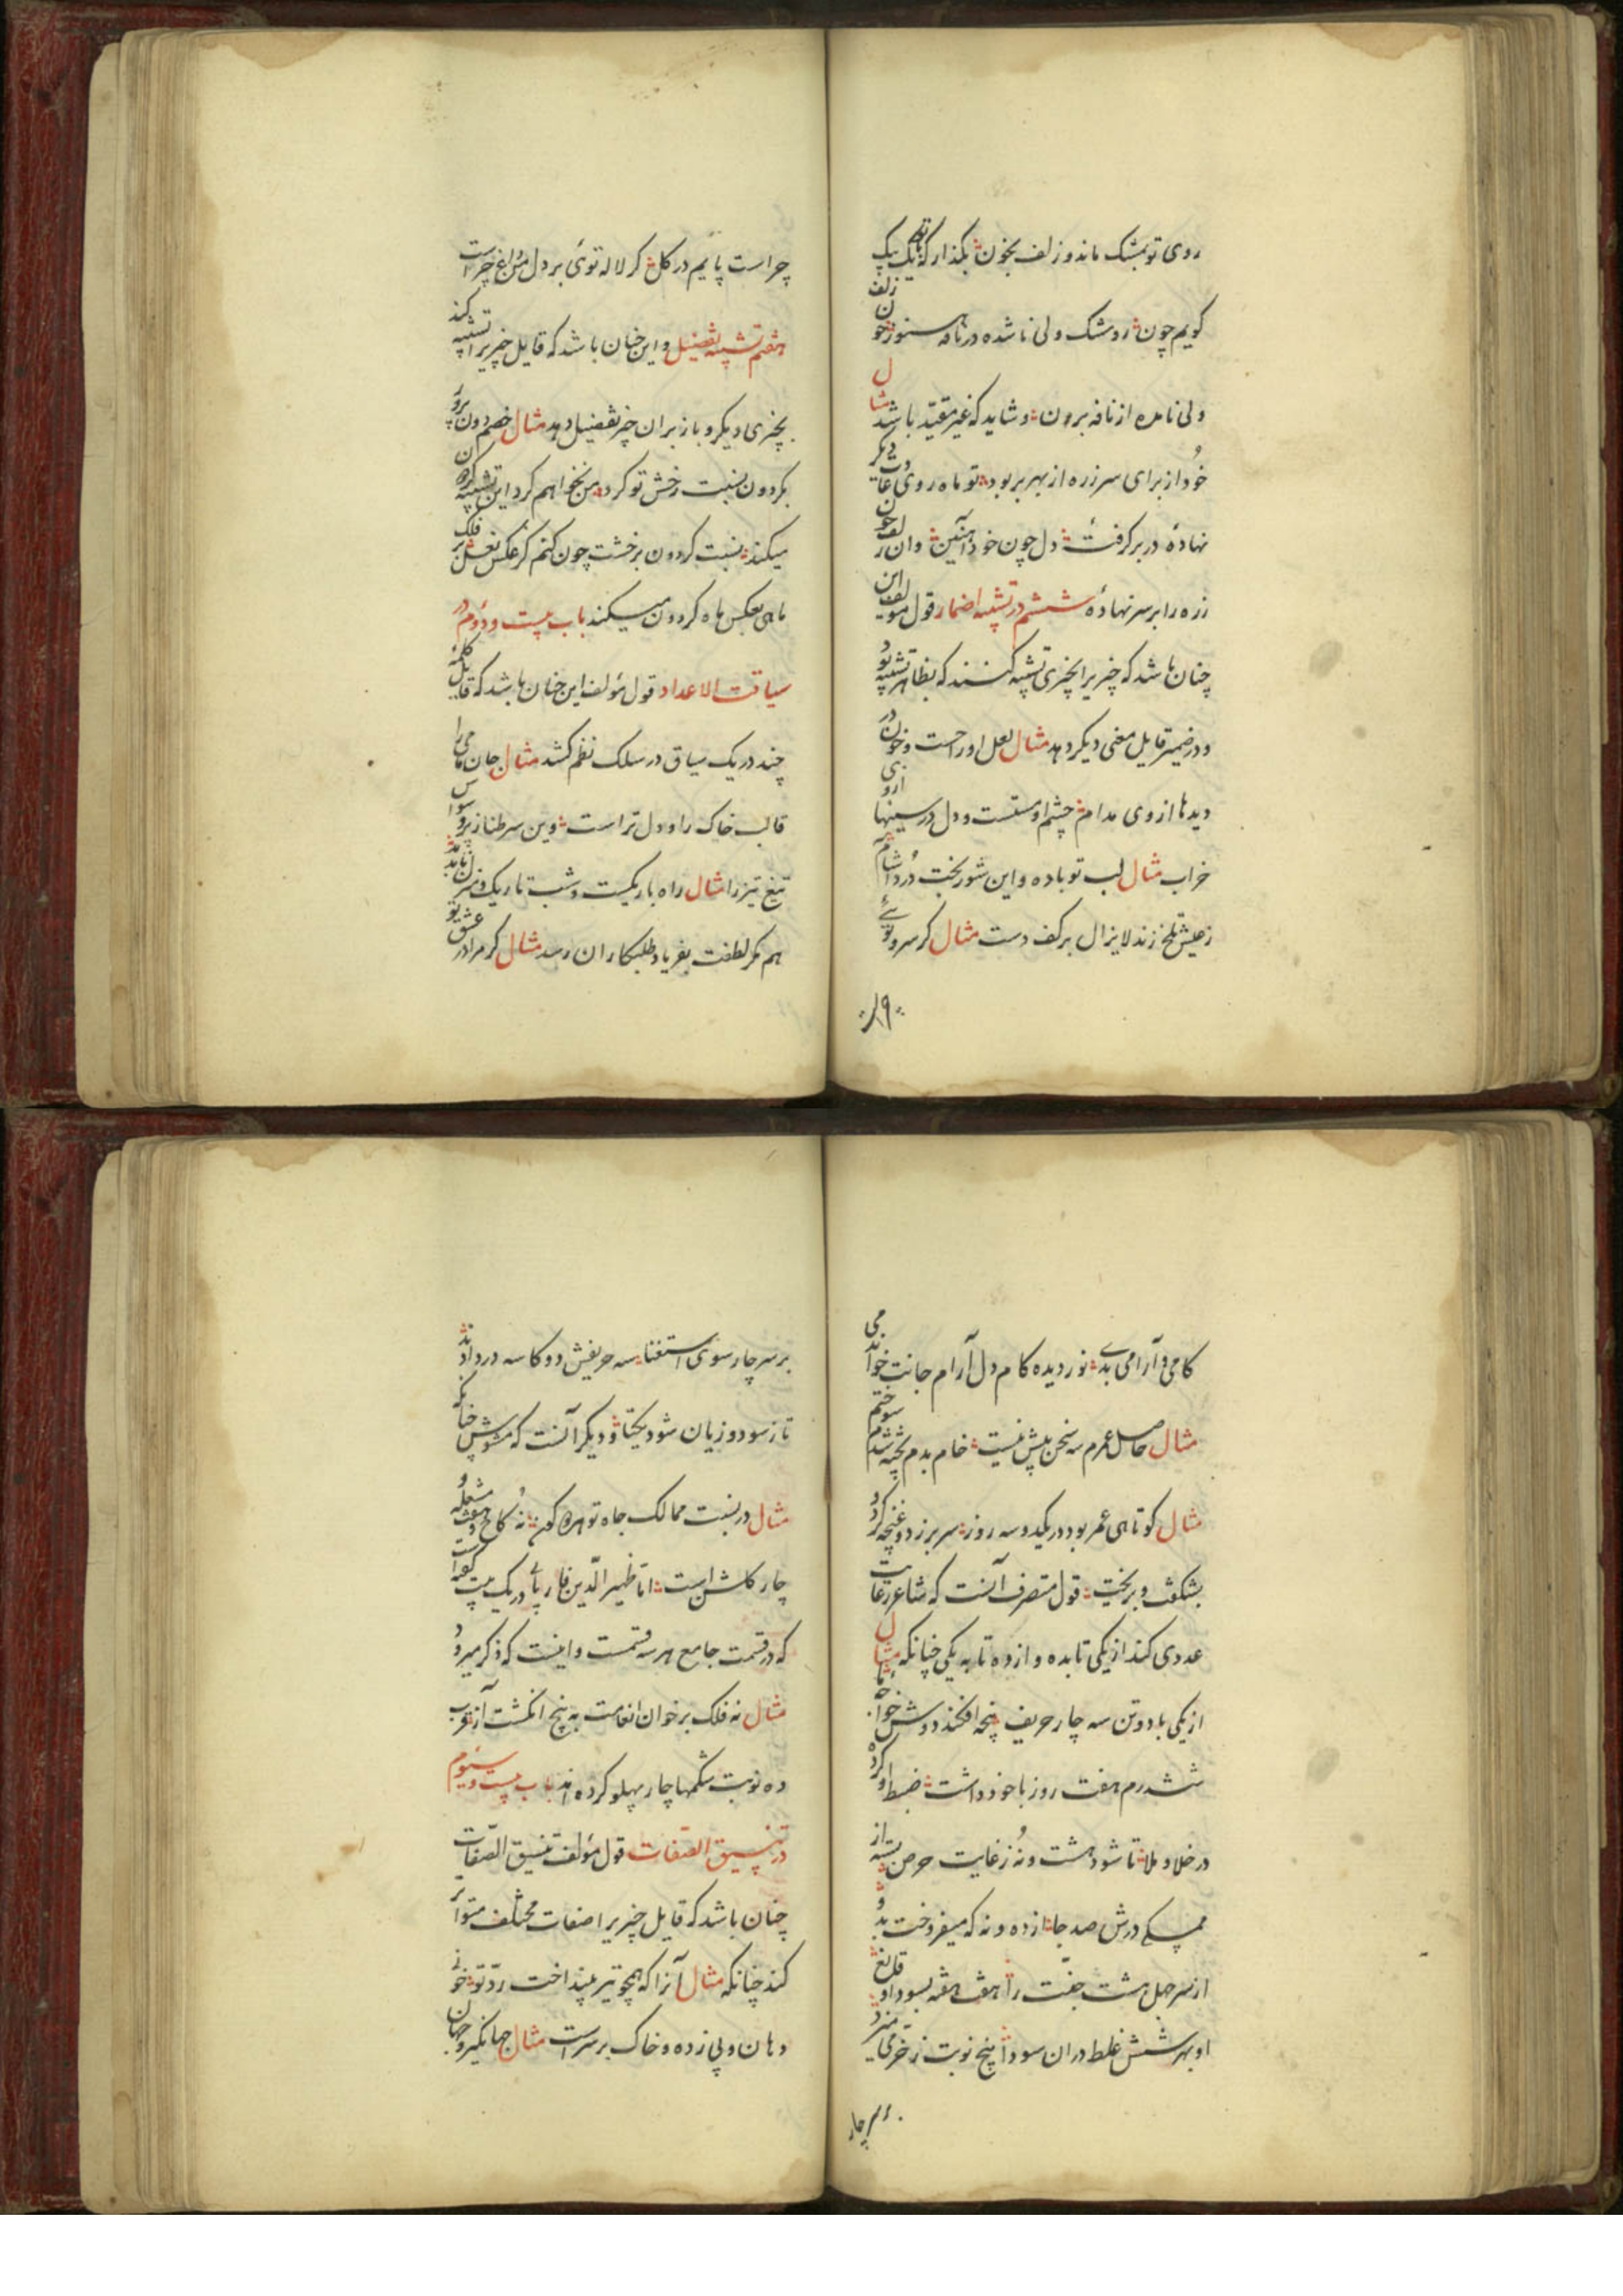 روی تو بمشک ماند و زلف بخون بگذار که یک بیک
کویم چون رو مشک ولی ناشده در نافه هنوز زلف خون
ولی نامده از نافه برون و شاید که غیر مقیّد باشد مثال
خُود از برای سر زره از بهر بر بود تو ماه روی عادت دیکر
نهادهٔ در بر کرفتهٔ دل چون خود آهنین وان زلف چون
زره را بر سر نهادهٔ ششم در تشبیه اضمار قول مولف این
چنان باشد که چیزیرا بچیزی تشبیه کنند که بظاهر تشبیه بود
و در ضمیر قایل معنی دیکر دهد مثال لعل او راحست و خون در
دیدها از وی مدام چشم او مستست و دل در سینها
خراب مثال لب تو باده و این شوربخت دُرد آشام
ز عیش تلخ زند لایزال بر کف دست مثال کر سرو توئی
چراست پایم در کل کر لاله توئی بر دل من داغ چراست
هفتم تشبیه تفضیل و این چنان باشد که قایل چیزیرا تشبیه کند
بچیزی دیکر و باز بران چیز تفضیل دهد مثال خصم دون پرور
بکردون نسبت رخش تو کرد من نخواهم کرد این تشبیه
میکند نسبت کردون برخشت چون کنم کز عکس نعل بر فلک
ماهی بعکس ماه کردون میکند باب بیست و دوم در
سیاقت الاعداد قول مؤلف این چنان باشد که قایل کلمهٔ
چند در یک سیاق در سلک نظم کشد مثال جان
قالب خاک را و دل تر است وین سر طناز پر وسواس
تیغ تیز را مثال راه باریکست و شب تاریک
هم مکر لطفت بفریاد طلبکاران رسد مثال کر مرا در عشق تو
کامی و آرامی بدی نور دیده کام دل آرام جانت خواندمی
مثال حاصل عمرم سه سخن بیش نیست خام بدم پخته شدم سوختم
مثال کوتاهی عمر بود در یکدو سه روز سر بر زد و غنچه کرد و
بشکفت و بریخت قول متصرف آنست که شاعر رعایت
عددی کند از یکی تا بده و از ده تا به یکی چنانکه مثال
از یکی با دو تن سه چار حریف پنجه افکند دوش خواجه ما
ششدرم هفت روز با خود داشت ضبط او کرده
در خلا و ملا تا شود هشت و نُه ز غایت حرص بسته از
ممسکی درش صد جا از ده و نه که میفروخت بدو
از سر جهل هشت جفت را هفت هفته بسود او
او بهر شش غلط دران سودا پنج نوبت ز خر می
بر سر چار سوی استغنا سه حریفش دو کاسه درد دادند
تا ز سود و زیان شود یکتا و دیکر آنست که مشوش چنانکه
مثال در نسبت ممالک جاه تو نه کاخ و هفت مشعله و
چار کلشن است اما ظهیر الدّین فاریابی در یک بیت کفته است
که در قسمت جامع هر سه قسمت و اینست که ذکر میرود
مثال نه فلک بر خوان انعامت به پنج انکشت آز
ده نوبت شکمها چار پهلو کرده اند باب بیست و سیوم
در تنسیق الصّفات قول مؤلف تنسیق الصّفات
چنان باشد که قایل چیزیرا صفات مختلف متواتر
کند چنانکه مثال آنرا که همچو تیر بینداخت ردّ تو خونی
دهان و پی زده و خاک بر سر است مثال جهانکیر و جهان